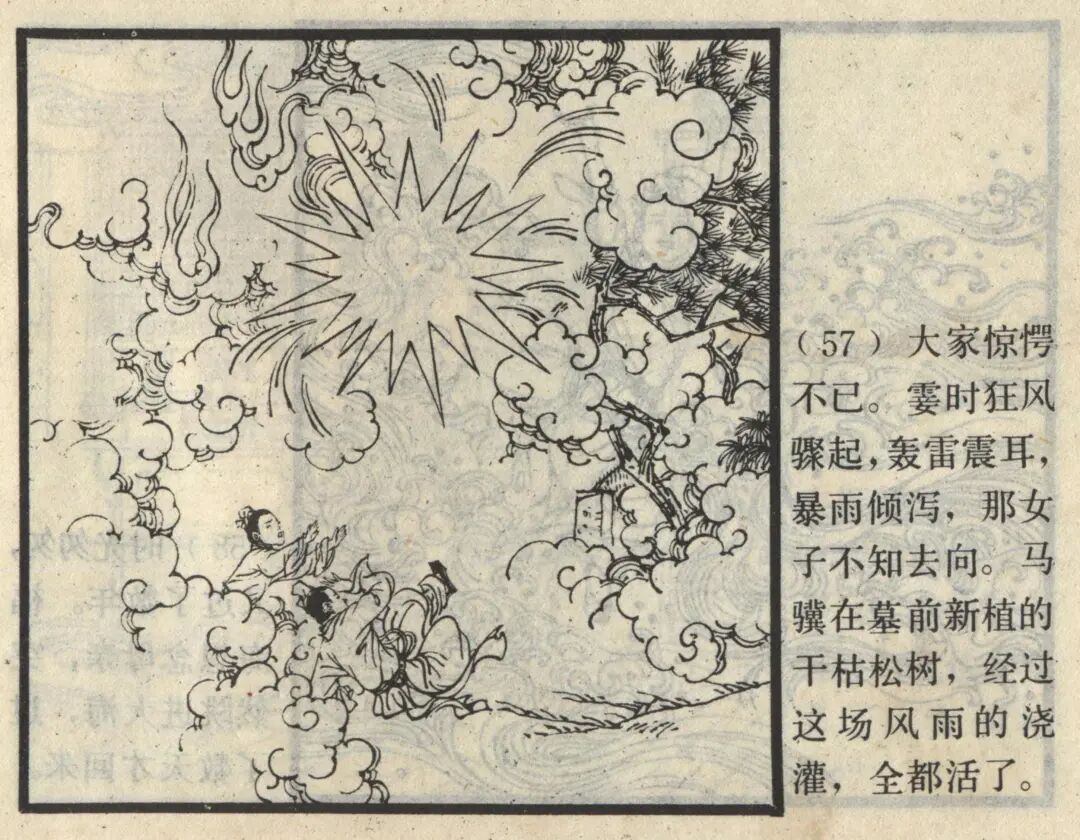 （57）大家惊愕
不已。霎时狂风
骤起，轰雷震耳，
暴雨倾泻，那女
子不知去向。马
骥在墓前新植的
干枯松树，经过
这场风雨的浇
灌，全都活了。